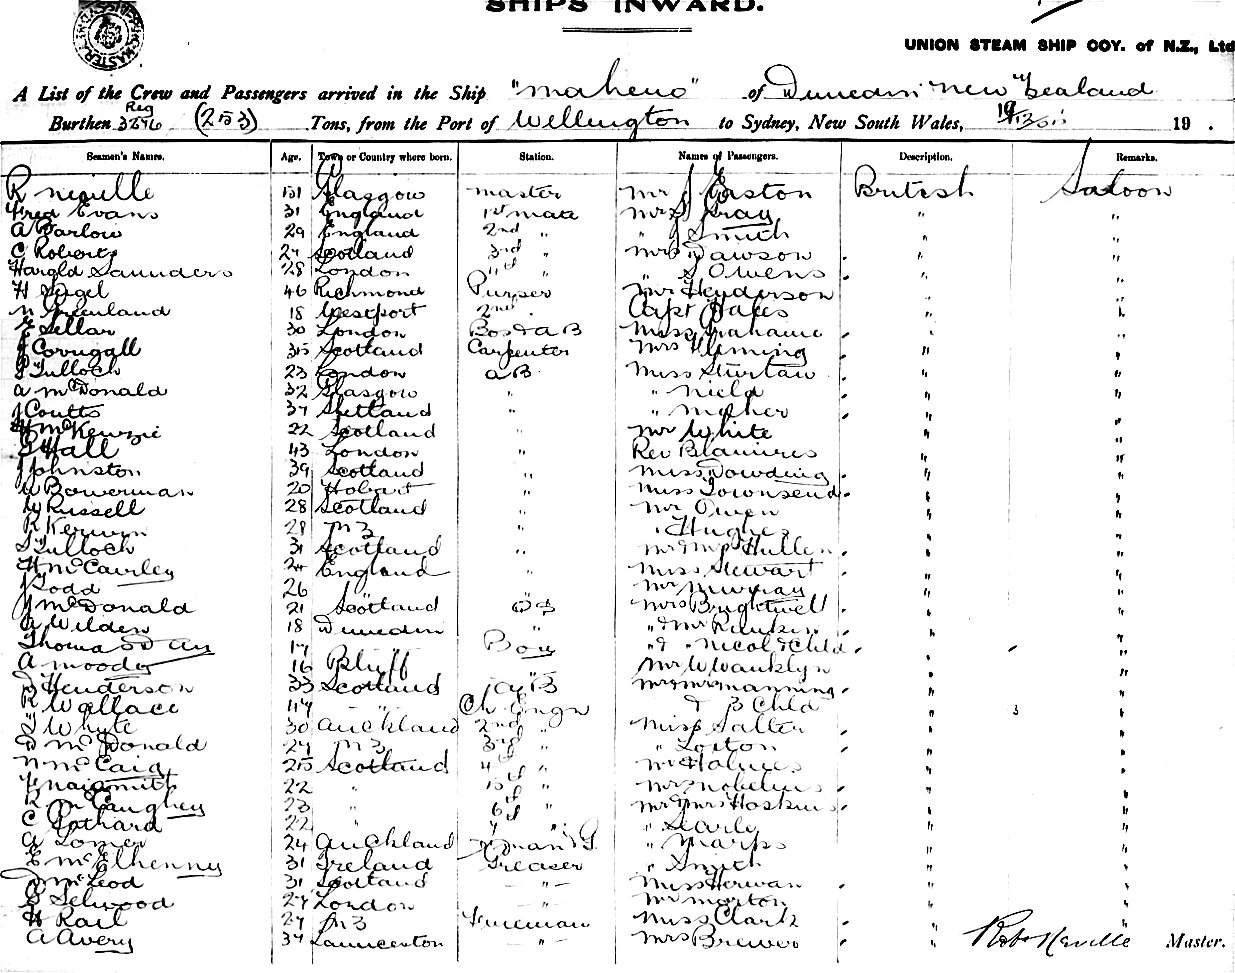 SHIPS INWARD.
UNION STEAM SHIP COY. of N.Z., Ltd
A List of the Crew and Passengers arrived in the Ship "Maheno" of Dunedin New Zealand
Burthen Reg Tons, from the Port of Wellington to Sydney, New South Wales, 19 .
Seamen's Names. Age. Town or Country where born. Station. Names of Passengers. Description. Remarks.
R Neville 51 Glasgow Master Mr J Easton British Saloon
Fred Evans 31 England 1st Mate Mr S Gray " "
A Barlow 29 England 2nd " " J Smith " "
C Roberts 27 Scotland 3rd " Mrs Dawson " "
Harold Saunders 28 London 4th " " S Owens " "
H 46 Richmond Purser Mr Henderson " "
N Greenland 18 Westport 2nd " Capt " "
Sellar 30 London Bos & AB Miss Grahame " "
J Corrugall 35 Scotland Carpenter Mrs Fleming " "
P Tulloch 23 London AB Miss " "
A McDonald 32 Glasgow " " Nield " "
J Coutts 37 Shetland " " Maher " "
H McKenzie 22 Scotland " Mr White " "
S Hall 43 London " Rev Blamires " "
J Johnston 39 Scotland " Miss Dowding " "
W Bowerman 20 Hobart " Miss Townsend " "
W Russell 28 Scotland " Mr Owen " "
R Kerwin 28 NZ " " Hughes " "
J Tulloch 31 Scotland " Mr & Mrs Hullen " "
H McCaurley 24 England Miss Stewart " "
J Todd 26 " Mr Murray " "
J McDonald 21 Scotland OS Mrs Brightwell " "
A Wilden 18 Dunedin " " & Mr " "
Thomas Day 17 Boy " & " Nicol & Child " "
A Moody 16 Bluff Mr W Wanklyn " "
Henderson 33 Scotland AB Mr & Mrs Manning " "
R Wallace 47 " Ch Engr & 3 Chld " 3 "
J Whyte 30 Auckland 2nd " Miss Salter " "
D McDonald 27 NZ 3rd " " " "
N McCaig 25 Scotland 4th " Mr Holmes " "
Naismith 22 " 5th " Mr " "
R McCaughey 23 " 6th Mr & Mrs Hoskins " "
C Pothard 22 " 7 " " Searly " "
A Lomer 24 Auckland " " "
E McElhenny 31 Ireland Greaser " Smith " "
D McLeod 31 Scotland " Miss " "
S Selwood 27 London " Mr Morton " "
H Rail 27 NZ Fireman Miss Clark "
A Avery 37 Launceston " Mrs Brewer " Robt Neville Master.